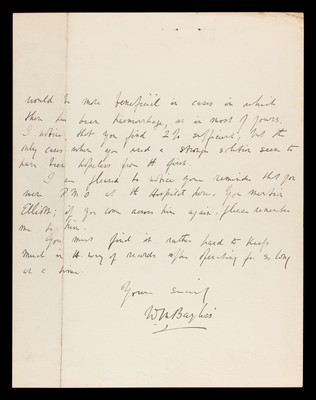 would be more beneficial in cases in which
there has been haemorrhage, as in most of yours.
I notice that you find 2% sufficient, but the
only cases where you used a stronger solution seem to
have been hopeless from the first.
I am pleased to notice your reminder that you
were R.M.O at the Hospital here. You mention
Elliott; if you come across him again, please remember
me to him.
You must find it rather hard to keep
much in the way of records after operating for so long
at a time.
Yours sincerely
W M Bayliss